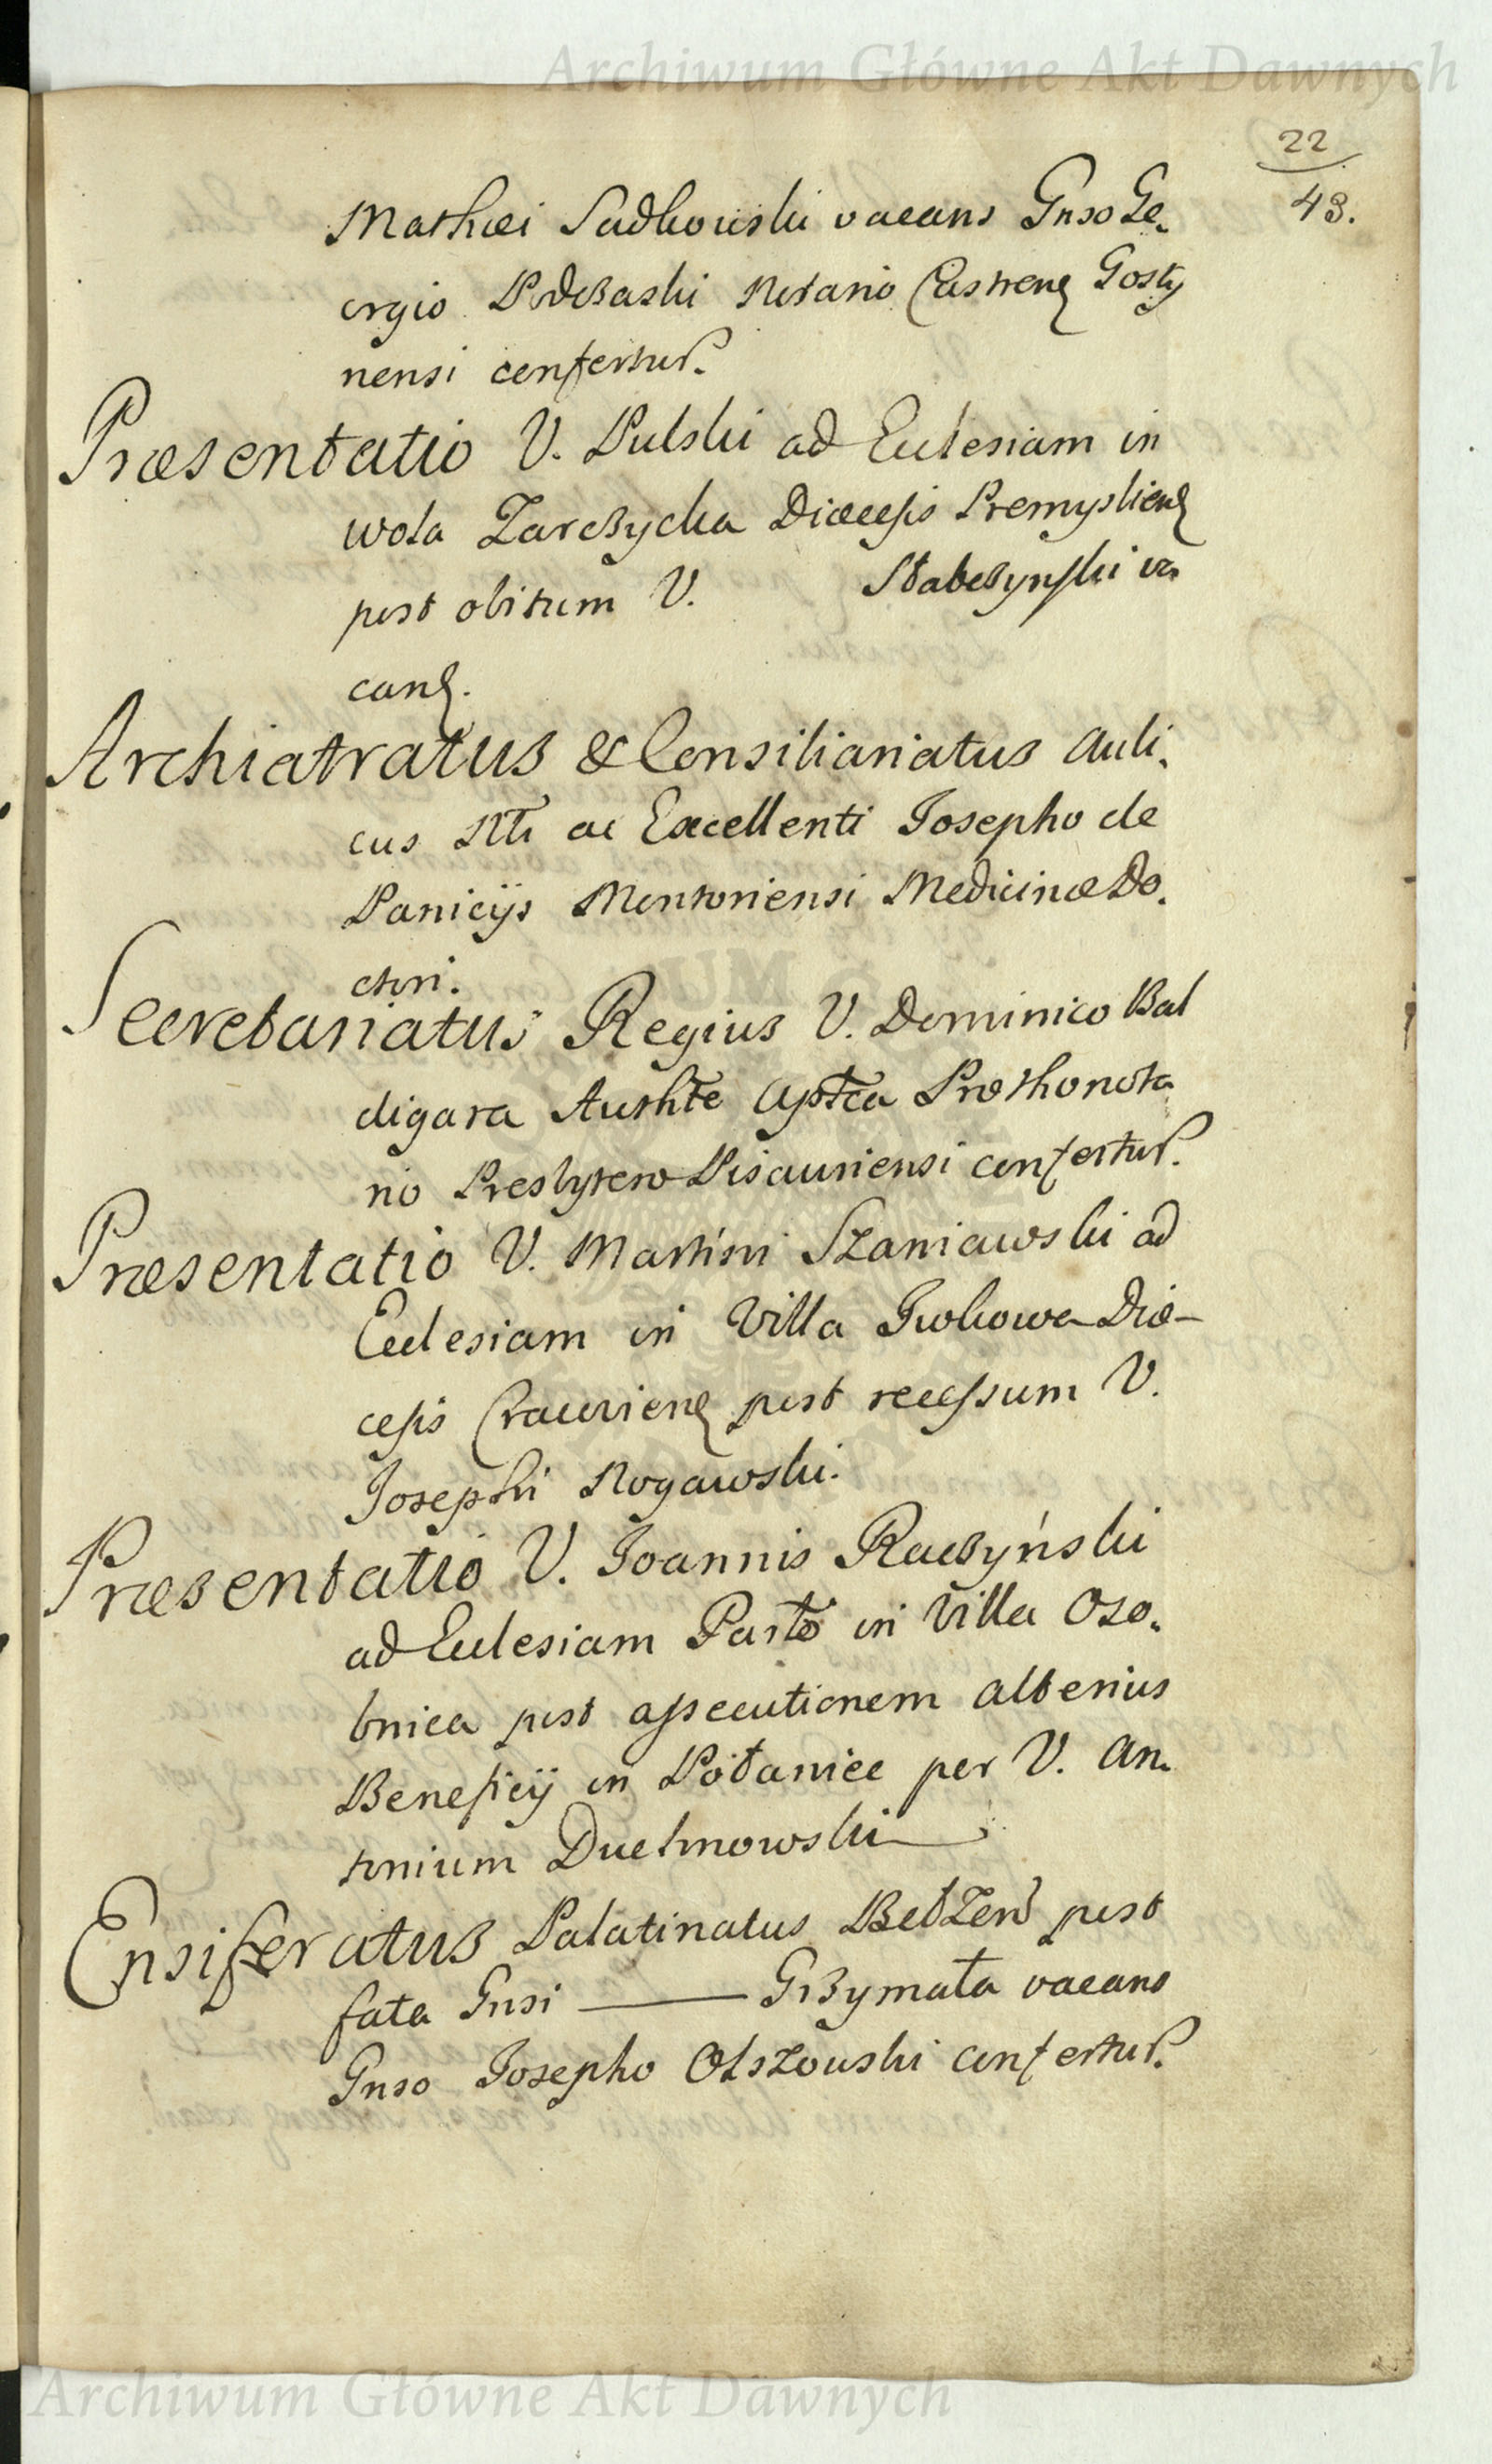 Archiwum Główne Akt Dawnych
22
43.
Mathæi Sadkowski vacans Gnso Ge-
orgio Podczaski Notario Castrens Gosty
nensi confertur.
Præsentatio V. Pulski ad Ecclesiam in
wola Zarczycka Diœcesis Premysliens
post obitum V. Stabczynski va
cans.
Archiatratus & Consiliariatus Auli-
cus Nli ac Excellenti Josepho de
Panicijs Montoriensi Medicinæ Do-
ctori.
Secretariatus Regius V. Dominico Bal
digara Authte Aptca Prothonota
rio Presbytero Pisauriensi confertur.
Præsentatio V. Martini Szaniawski ad
Ecclesiam in Villa Diœ-
cesis Cracoviens post recessum V.
Josephi Rogawski.
Præsentatio V. Joannis Raczyński
ad Ecclesiam Parlo in Villa Oso-
bnica post assecutionem alterius
Beneficij in Potanice per V. An-
tonium Duchnowski
Ensiferatus Palatinatus Betzens post
fata Gnsi — Grzymała vacans
Gnso Josepho Olszouski confertur.
Archiwum Główne Akt Dawnych